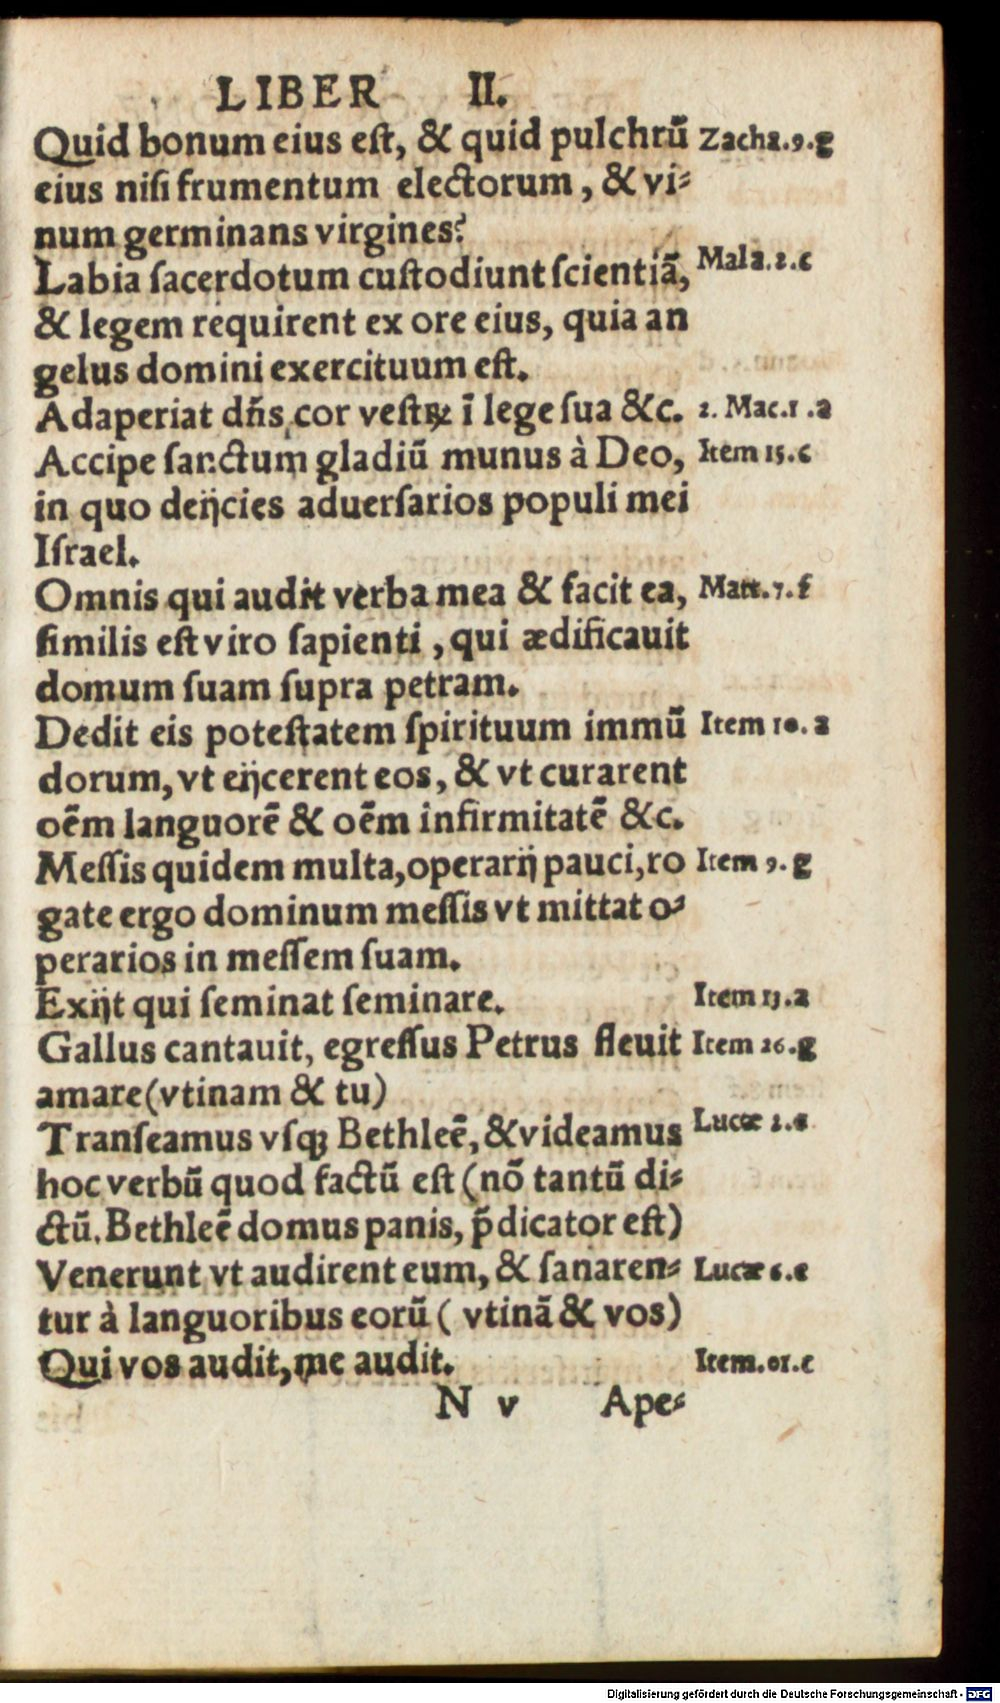 LIBER II.
Quid bonum eius eſt, & quid pulchrũ Zacha.9.g
eius niſi frumentum electorum, & vi⸗
num germinans virgines?
Labia ſacerdotum cuſtodiunt ſcientiã, Mala.2.c
& legem requirent ex ore eius, quia an
gelus domini exercituum eſt.
Adaperiat dñs cor veſtꝝ ĩ lege ſua &c. 2. Mac.1.a
Accipe ſanctum gladiũ munus à Deo, Item 15.c
in quo deijcies aduerſarios populi mei
Iſrael.
Omnis qui audit verba mea & facit ea, Matt.7.f
ſimilis eſt viro ſapienti, qui ædificauit
domum ſuam ſupra petram.
Dedit eis poteſtatem ſpirituum immũ Item 10.a
dorum, vt eijcerent eos, & vt curarent
oẽm languorẽ & oẽm infirmitatẽ &c.
Meſſis quidem multa, operarij pauci, ro Item 9.g
gate ergo dominum meſſis vt mittat o⸗
perarios in meſſem ſuam.
Exijt qui ſeminat ſeminare. Item 13.a
Gallus cantauit, egreſſus Petrus fleuit Item 26.g
amare (vtinam & tu)
Tranſeamus vſqꝫ Bethleẽ, & videamus Lucæ 2.
hoc verbũ quod factũ eſt (nõ tantũ di⸗
ctũ. Bethleẽ domus panis, p̃dicator eſt)
Venerunt vt audirent eum, & ſanaren⸗ Lucæ 6.e
tur à languoribus eorũ (vtinã & vos)
Qui vos audit, me audit. Item.01.c
N v Ape⸗
Digitalisierung gefördert durch die Deutsche Forschungsgemeinschaft - DFG